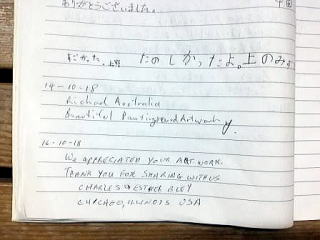 ありがとうございました。 中田
たのしかったよ。上のみ
14-10-18
Richard Australia
Beautiful Paintings and Artwork
16-10-18
WE APPRECIATED YOUR ART WORK.
THANK YOU FOR SHARING WITH US.
CHARLES & ESTHER
CHICAGO, ILLINOIS USA